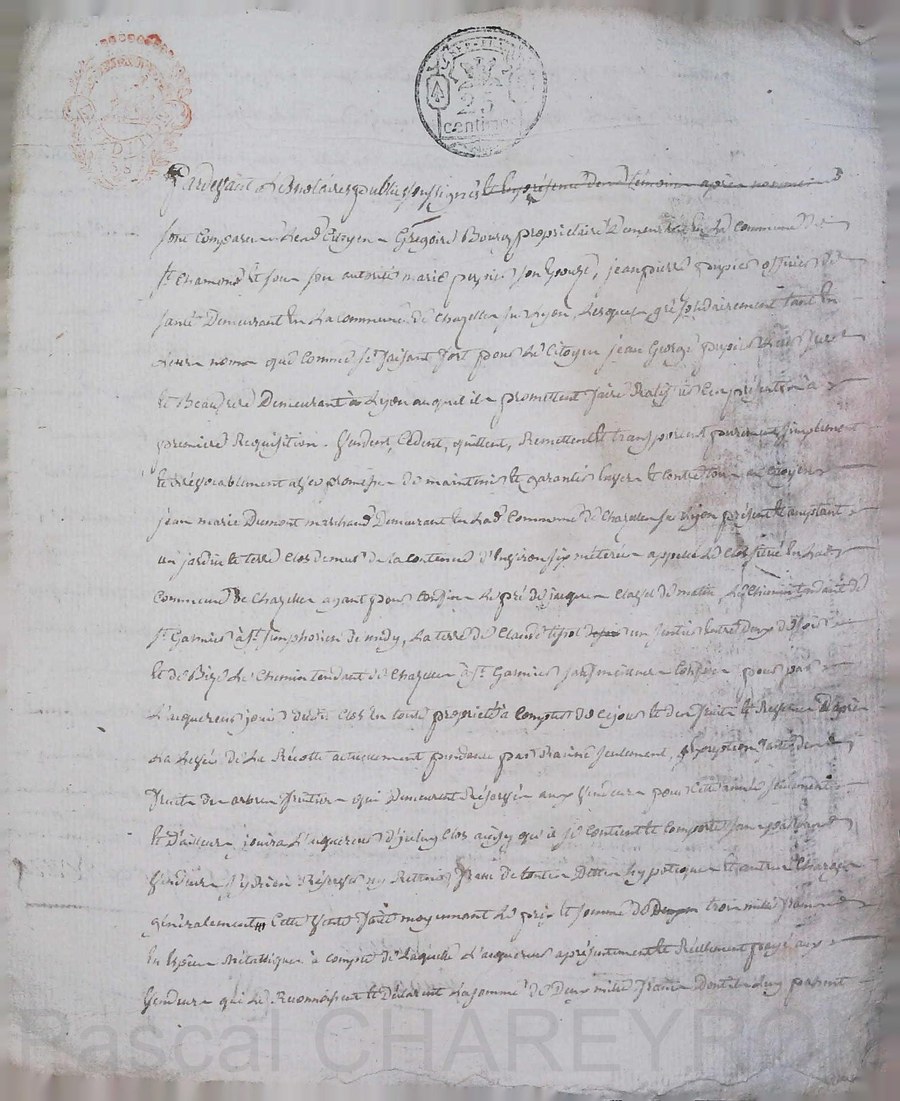 25
centimes
Pardevant Le Notaire public soussigné et en présence des témoins après nommés
sont comparus Lesd Citoyen Grégoire Bouras propriétaire demeurant en La commune de
St Chamond et sous son autorité marie pupier son Epouze, jean pierre pupier officier de
santé Demeurant En La commune de Chazelles sur Lyon, Lesquels gré solidairement tant En
Leurs noms que comme se faisant fort pour Le Citoyen jean George pupier Leur frere
et Beaufrere Demeurant à Lyon auquel ils promettent faire Ratifier Ces présentes à
premiere Requisition. Vendent, Cedent, quittent, Remettent et transportent purement simplement
et irrévocablement avec promesse de maintenir et garantir Envers et contre tous au Citoyen
jean marie Dumont marchand Demeurant En Lad Commune de Chazelles sur Lyon présent et acceptant
un jardin et terre clos de murs de la contenue d'Environ six méterées appellé Le Clos situé En Lad
Commune de Chazelles ayant pour Confins Le pré de jacques de matin, Le Chemin tendant de
St Garmier à St Simphorien de midy, La terre de Claude un sentier entre Deux de soir
et de Bize Le Chemin tendant de Chazelles à St Garmier sauf meilleurs Confins pour par
L'acquereur jouir dudit Clos En toute propriété à Compter de ce jour et des fruits et Revenus d'après
La Levée de La Récolte actuellement pendante par Racine seulement,
fruits des arbres fruitiers qui Demeurent Réservés aux Vendeurs pour cette année seulement
et d'ailleurs jouira L'acquereur d'iceluy Clos ainsy qu'il se Contient et Comporte sans par les
Vendeurs s'y rien Réserver ny Retenir franc de toutes Dettes hypotèques et autres Charges
généralement Cette Vente faite moyennant Le prix et somme de trois mille francs
En Espèces Métalliques à compte de Laquelle L'acquereur a présentement et Réellement payé aux
Vendeurs qui Le Reconnoissent et Déclarent La somme de Deux mille francs Dont ils Luy passent
Pascal CHAREYRON